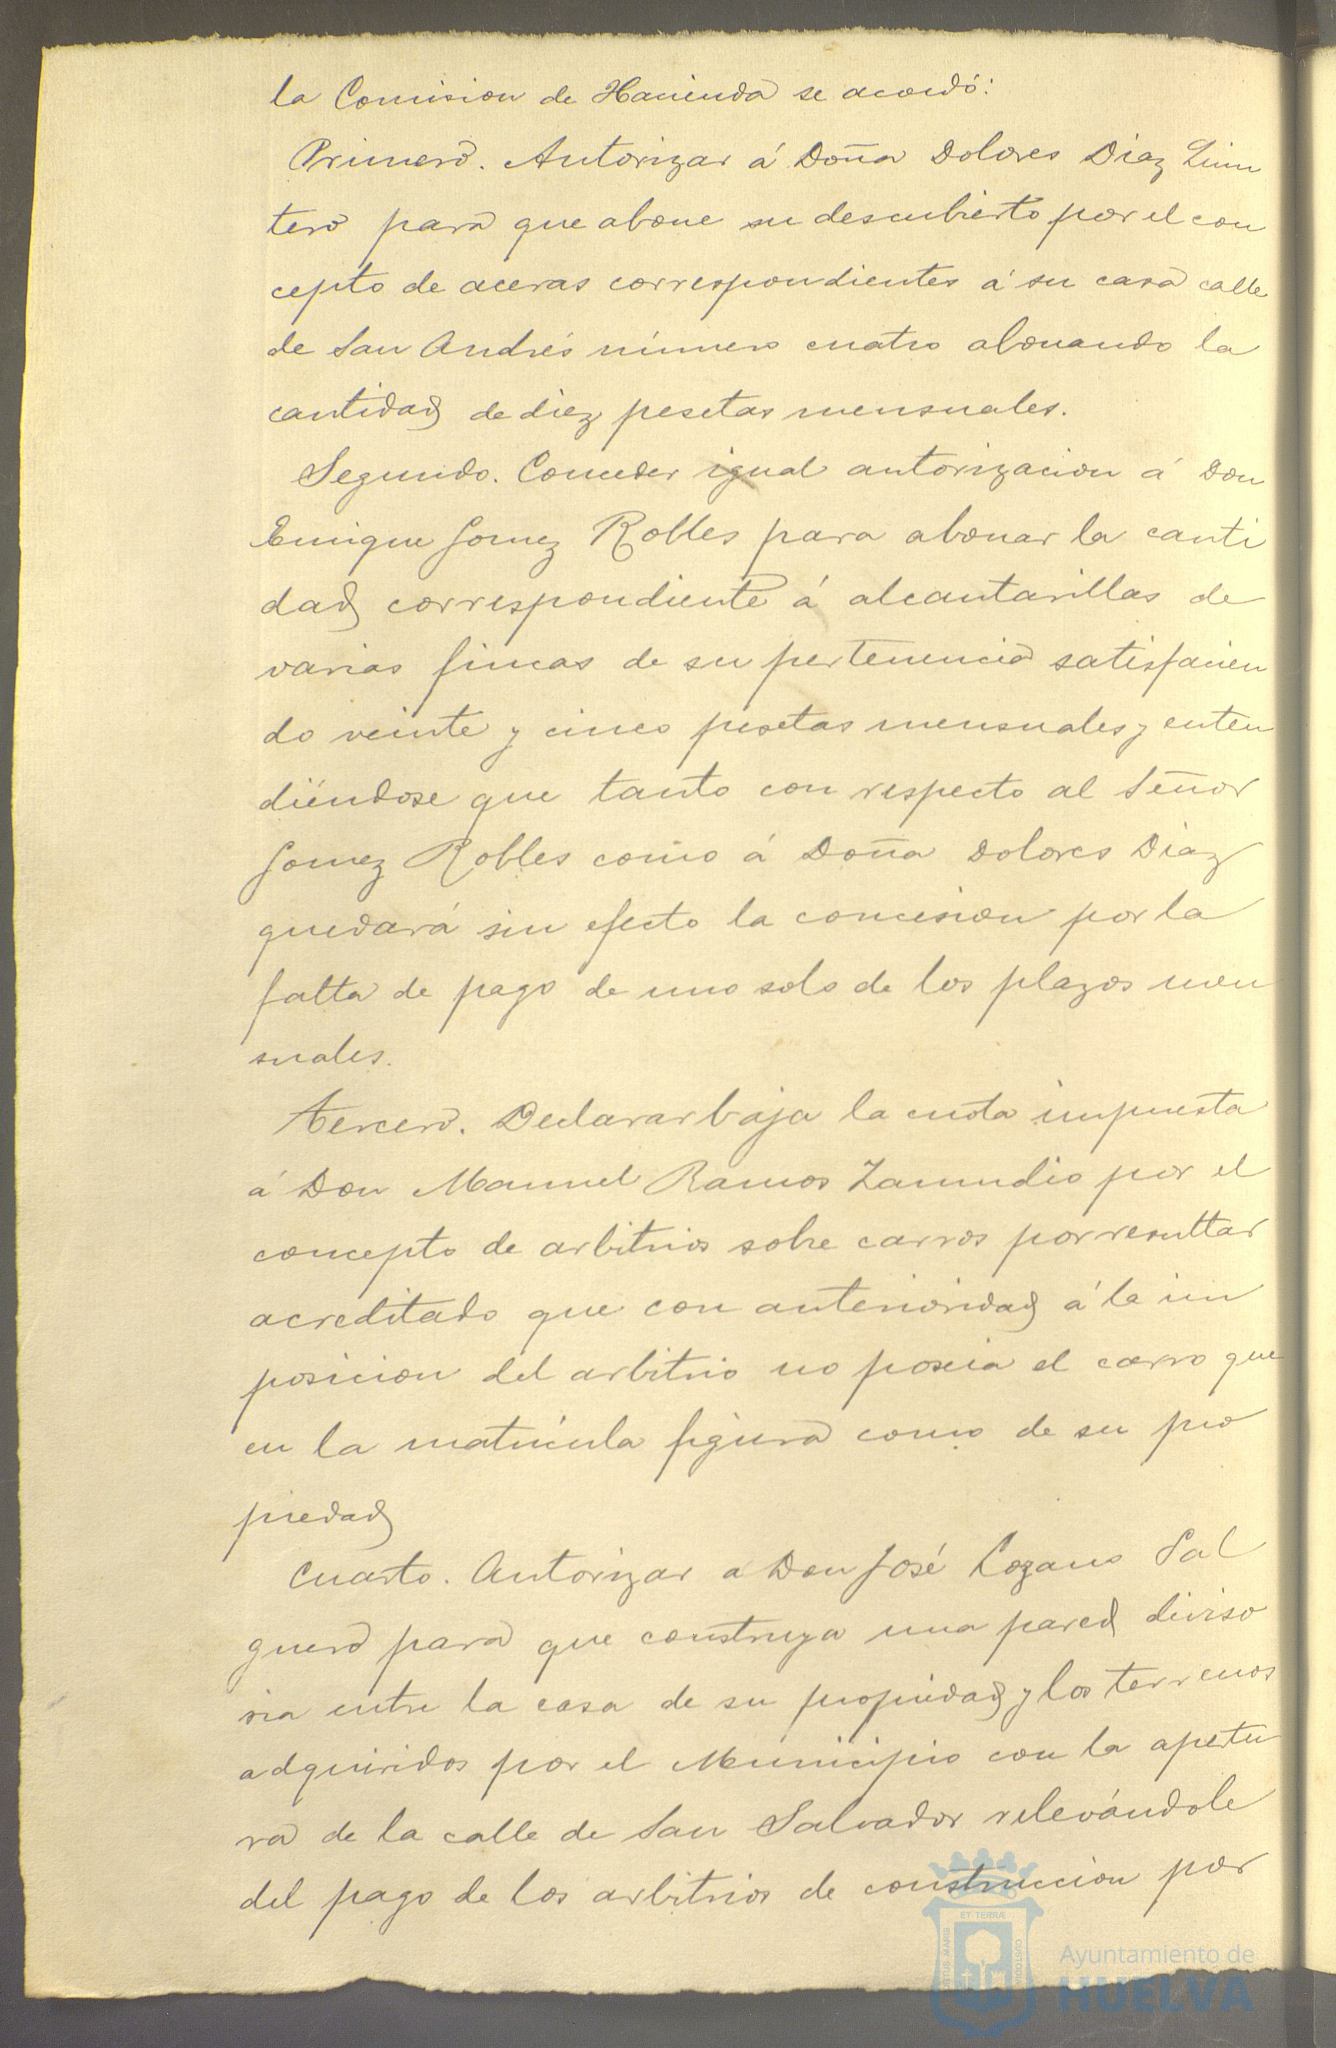 la Comision de Hacienda se acordó:
Primero. Autorizar á Doña Dolores Diaz Quin
tero para que abone su descubierto por el con
cepto de aceras correspondientes á su casa calle
de San Andrés número cuatro abonando la
cantidad de diez pesetas mensuales.
Segundo. Conceder igual autorizacion á Don
Enrique Gomez Robles para abonar la canti
dad correspondiente á alcantarillas de
varias fincas de su pertenencia satisfacien
do veinte y cinco pesetas mensuales, enten
diéndose que tanto con respecto al Señor
Gomez Robles como á Doña Dolores Diaz
quedará sin efecto la concesion por la
falta de pago de uno solo de los plazos men
suales.
Tercero. Declarar baja la cuota impuesta
á Don Manuel Ramos Zamudio por el
concepto de arbitrios sobre carros por resultar
acreditado que con anterioridad á la im
posicion del arbitrio no poseia el carro que
en la matrícula figura como de su pro
piedad
Cuarto. Autorizar a Don José Lozano Sal
guero para que construya una pared diviso
ria entre la casa de su propiedad y los terrenos
adquiridos por el Municipio con la apertu
ra de la calle de San Salvador relevándole
del pago de los arbitrios de construccion por
ET TERRÆ
PORTUS MARIS
CUSTODIA
Ayuntamiento de
HUELVA